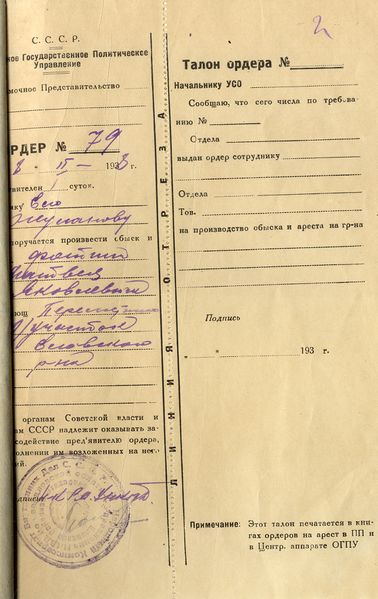 С. С. С. Р.
ное Государственное Политическое
Управление
мочное Представительство
РДЕР № 79
193 г.
вителен суток.
нику
Жупанову
оручается произвести обыск и
Матвея
Яковлевича
ющ.
участок
р-на
органам Советской власти и
ам СССР надлежит оказывать за-
содействие пред'явителю ордера,
полнении им возложенных на него
ий.
одпись
ЛИНИЯ ОТРЕЗА
2
Талон ордера №
Начальнику УСО
Сообщаю, что сего числа по требова-
нию №
Отдела
выдан ордер сотруднику
Отдела
Тов.
на производство обыска и ареста на гр-на
Подпись
" " 193 г.
Примечание: Этот талон печатается в кни-
гах ордеров на арест в ПП и
в Центр. аппарате ОГПУ